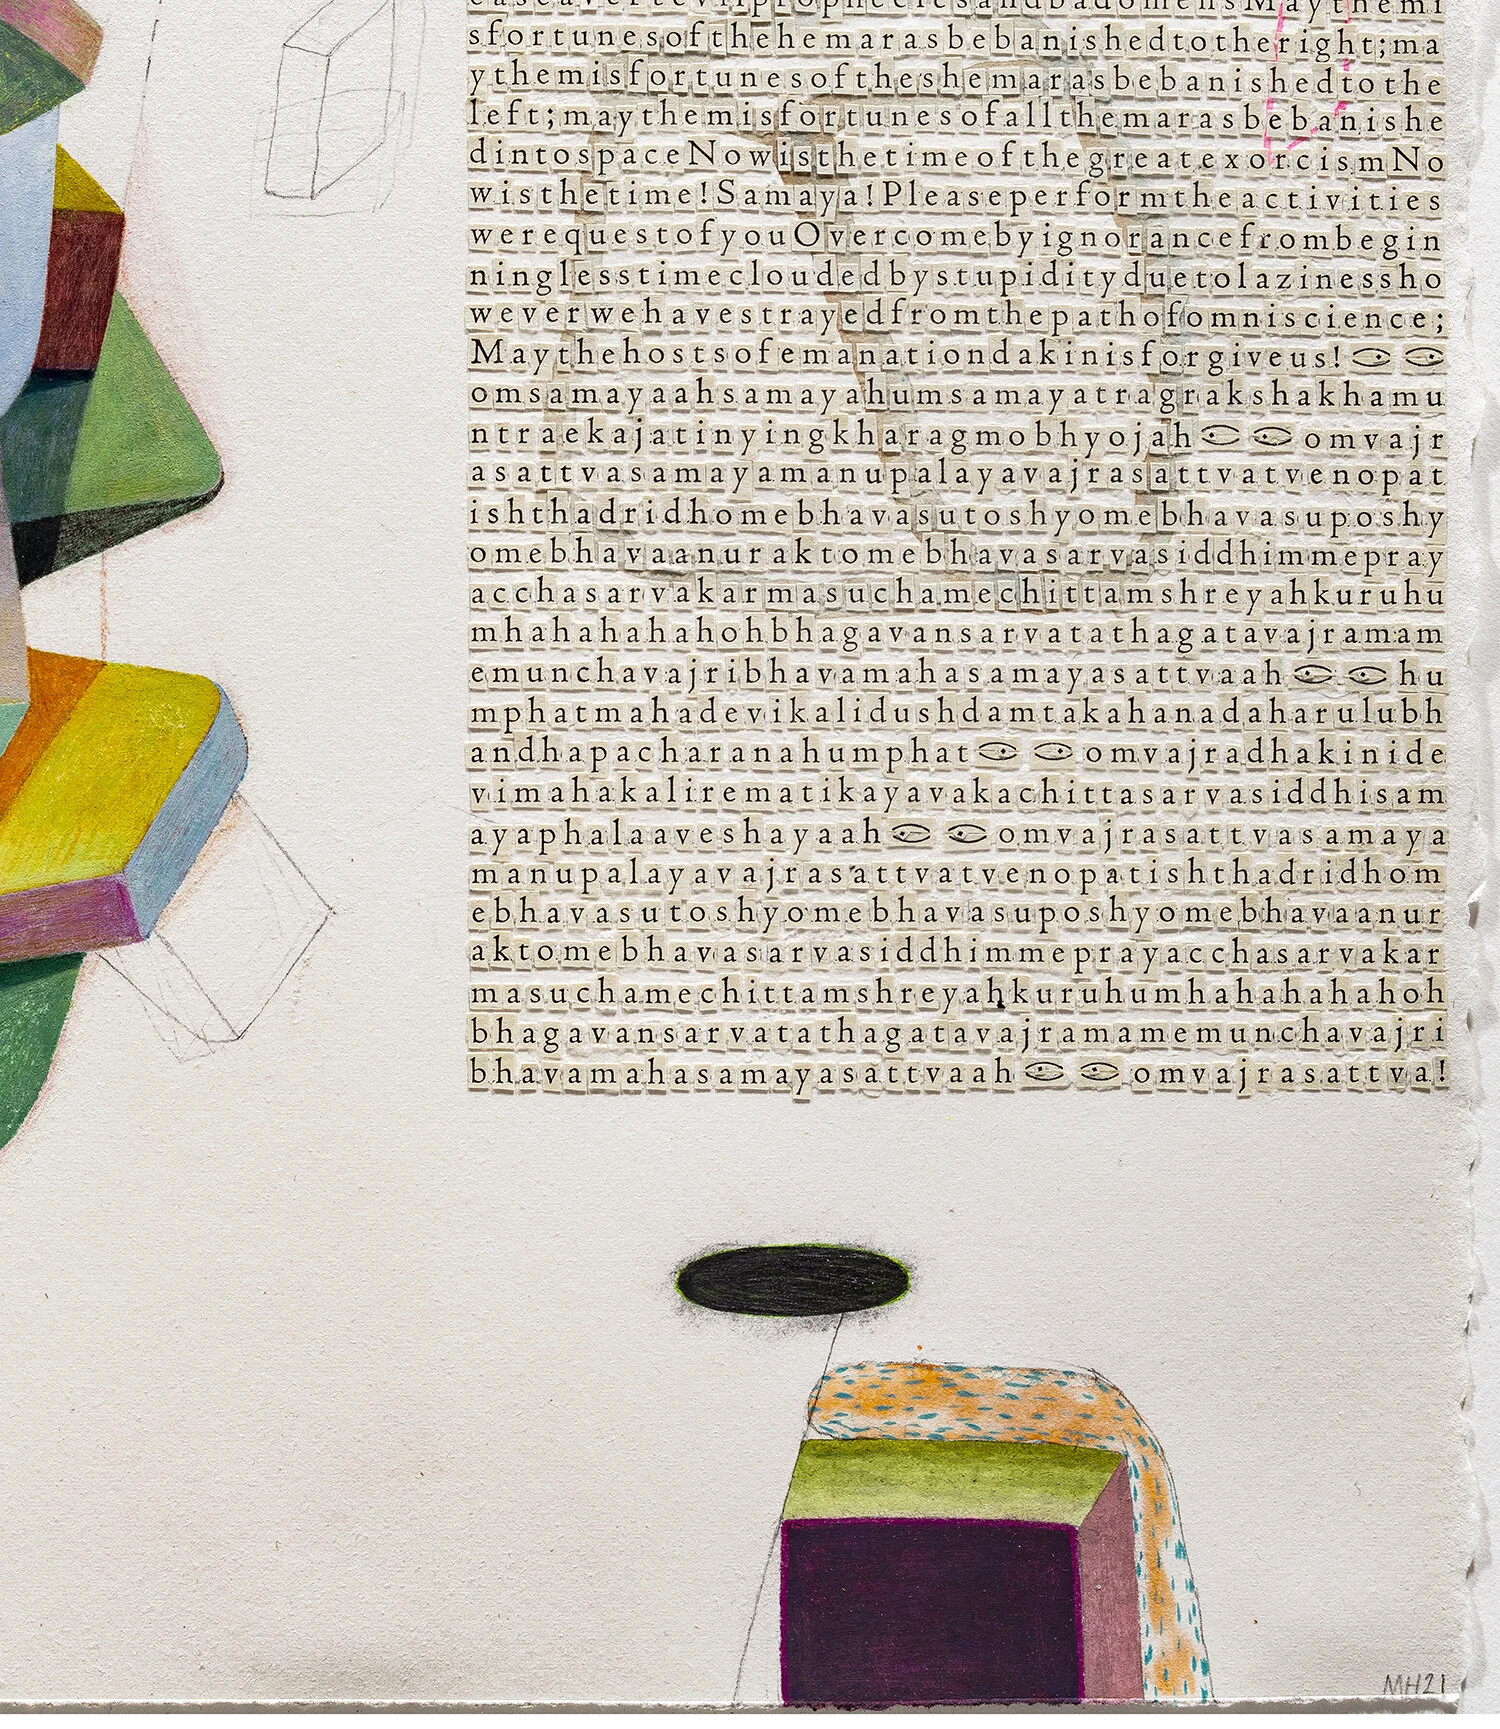 easeavertevilpropheciesandbadomensMaythemi
sfortunesofthehemarasbebanishedtotheright;ma
ythemisfortunesoftheshemarasbebanishedtothe
left;maythemisfortunesofallthemarasbebanishe
dintospaceNowisthetimeofthegreatexorcismNo
wisthetime!Samaya!Pleaseperformtheactivities
werequestofyouOvercomebyignorancefrombegin
ninglesstimecloudedbystupidityduetolazinessho
weverwehavestrayedfromthepathofomniscience;
Maythehostsofemanationdakinisforgiveus!
omsamayaahsamayahumsamayatragrakshakhamu
ntraekajatinyingkharagmobhyojah omvajr
asattvasamayamanupalayavajrasattvatvenopat
ishthadridhomebhavasutoshyomebhavasuposhy
omebhavaanuraktomebhavasarvasiddhimmepray
acchasarvakarmasuchamechittamshreyahkuruhu
mhahahahahohbhagavansarvatathagatavajramam
emunchavajribhavamahasamayasattvaah hu
mphatmahadevikalidushdamtakahanadaharulubh
andhapacharanahumphat omvajradhakinide
vimahakalirematikayavakachittasarvasiddhisam
ayaphalaaveshayaah omvajrasattvasamaya
manupalayavajrasattvatvenopatishthadridhom
ebhavasutoshyomebhavasuposhyomebhavaanur
aktomebhavasarvasiddhimmeprayacchasarvakar
masuchamechittamshreyahkuruhumhahahahahoh
bhagavansarvatathagatavajramamemunchavajri
bhavamahasamayasattvaah omvajrasattva!
MH21